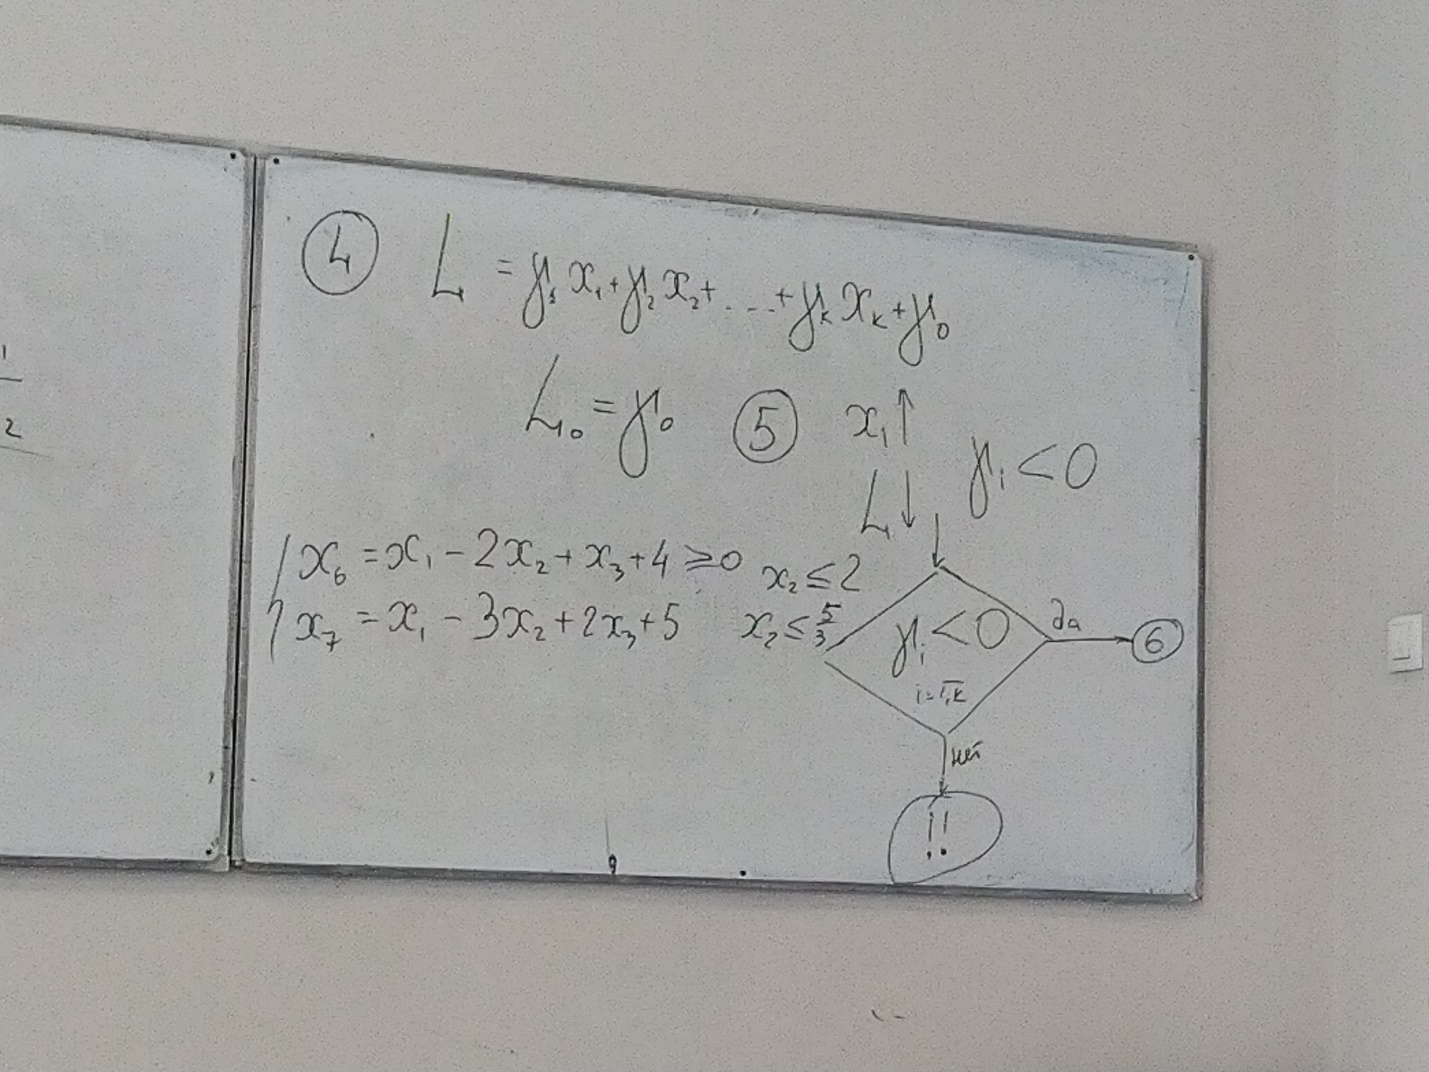 ④ L = γ₁x₁ + γ₂x₂ + ... + γₖxₖ + γ₀
L₀ = γ₀
⑤ x₁↑
L↓
γᵢ < 0
x₆ = x₁ - 2x₂ + x₃ + 4 ≥ 0 x₂ ≤ 2
x₇ = x₁ - 3x₂ + 2x₃ + 5 x₂ ≤ 5/3
γᵢ < 0
i = 1,k
да
⑥
нет
!!
1
2